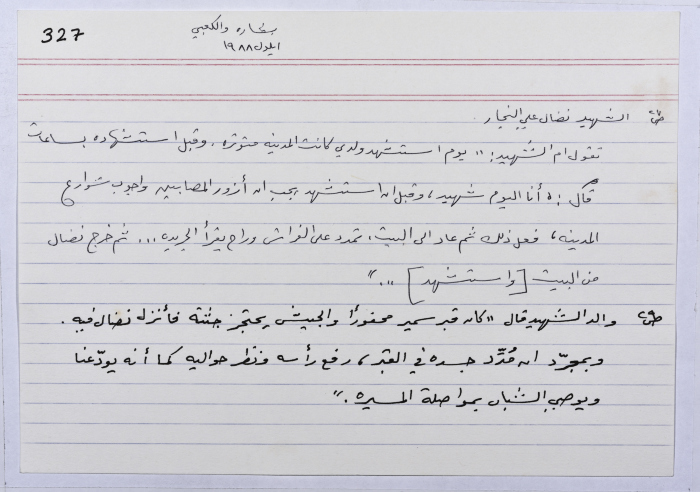 327
بشاره والكعبي
ايلول ١٩٨٨
ص٤٢ الشهيد نضال علي النجار
تقول ام الشهيد: "يوم استشهد ولدي كانت المدينه متوتره، وقبل استشهاده بساعات
قال: ه أنا اليوم شهيد، وقبل ان استشهد يجب ان أزور المصابين واجوب شوارع
المدينه، فعل ذلك ثم عاد الى البيت، تمدد على الفراش وراح يقرأ الجريده... ثم خرج نضال
من البيت [واستشهد] ..."
ص٤٩ والد الشهيد قال "كان قبر سمير محفورًا والجيش يحتجز جثته فأنزل نضال فيه.
وبمجرّد ان مُدّد جسده في القبر، رفع رأسه ونظر حواليه كما أنه يودّعنا
ويوصي الشبان بمواصلة المسيره."